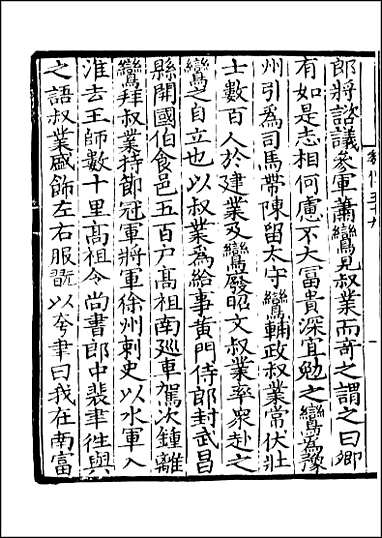 郎將諮議參軍蕭鸞見叔業而竒之謂之曰卿
有如是志相何慮不大冨貴深宜勉之鸞爲豫
州引爲司馬帶陳留太守鸞輔政叔業常伏壯
士數百人於建業及鸞廢昭文叔業率衆赴之
鸞之自立也以叔業爲給事黄門侍郎封武昌
縣開國伯食邑五百戸髙祖南廵車駕次鍾離
鸞拜叔業持節冠軍將軍徐州刺史以水軍入
淮去王師數十里髙祖令尚書郎中裴聿徃與
之語叔業盛飾左右服翫以夸聿曰我在南富